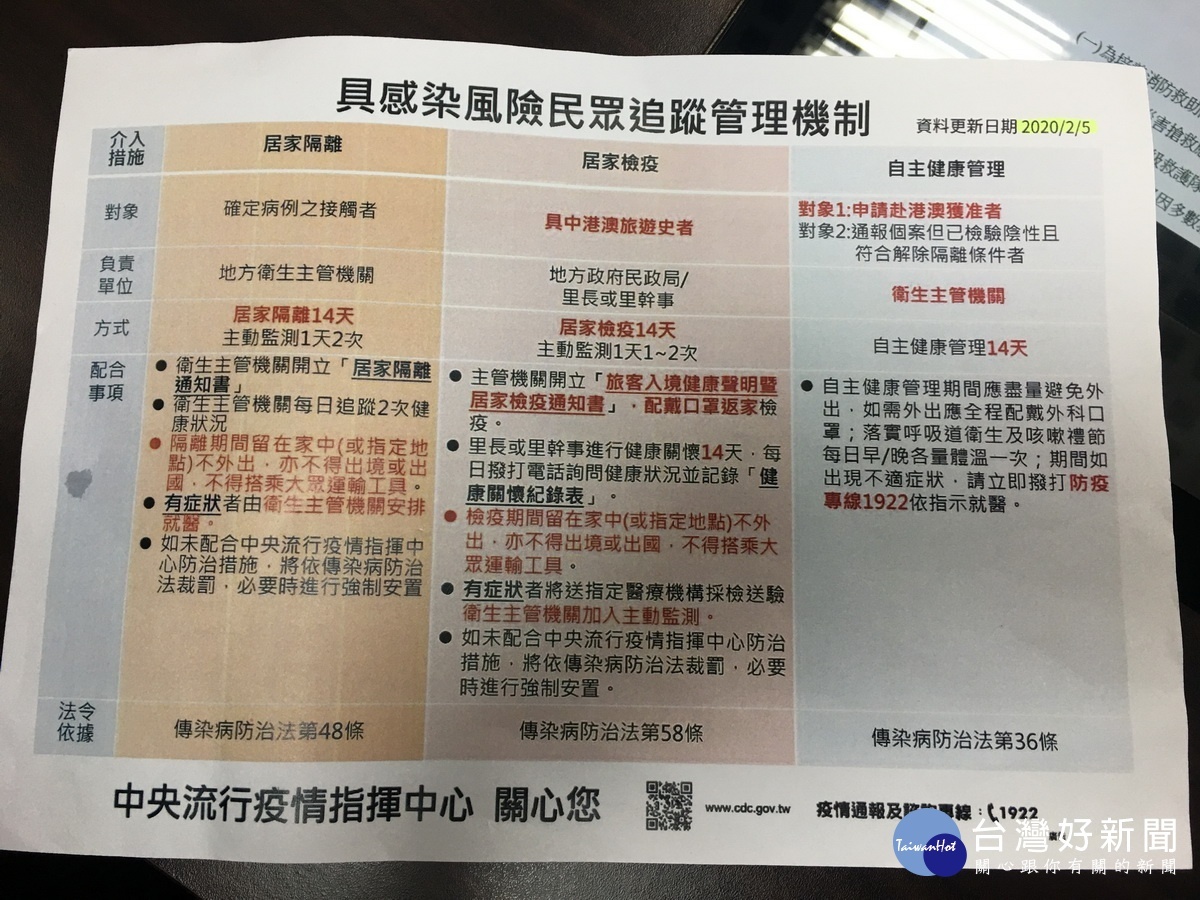 具感染風險民眾追蹤管理機制
資料更新日期2020/2/5
介入
措施
居家隔離
居家檢疫
自主健康管理
對象
確定病例之接觸者
具中港澳旅遊史者
對象1:申請赴港澳獲准者
對象2:通報個案但已檢驗陰性且
符合解除隔離條件者
負責
單位
地方衛生主管機關
地方政府民政局/
里長或里幹事
衛生主管機關
方式
居家隔離14天
主動監測1天2次
居家檢疫14天
主動監測1天1~2次
自主健康管理14天
配合
事項
● 衛生主管機關開立「居家隔離
通知書」
● 衛生主管機關每日追蹤2次健
康狀況
● 隔離期間留在家中(或指定地
點)不外出，亦不得出境或出
國，不得搭乘大眾運輸工具。
● 有症狀者由衛生主管機關安排
就醫。
● 如未配合中央流行疫情指揮中
心防治措施，將依傳染病防治
法裁罰，必要時進行強制安置
● 主管機關開立「旅客入境健康聲明暨
居家檢疫通知書」，配戴口罩返家檢
疫。
● 里長或里幹事進行健康關懷14天，每
日撥打電話詢問健康狀況並記錄「健
康關懷紀錄表」。
● 檢疫期間留在家中(或指定地點)不外
出，亦不得出境或出國，不得搭乘大
眾運輸工具。
● 有症狀者將送指定醫療機構採檢送驗
衛生主管機關加入主動監測。
● 如未配合中央流行疫情指揮中心防治
措施，將依傳染病防治法裁罰，必要
時進行強制安置。
● 自主健康管理期間應盡量避免外
出，如需外出應全程配戴外科口
罩；落實呼吸道衛生及咳嗽禮節
每日早/晚各量體溫一次；期間如
出現不適症狀，請立即撥打防疫
專線1922依指示就醫。
法令
依據
傳染病防治法第48條
傳染病防治法第58條
傳染病防治法第36條
中央流行疫情指揮中心 關心您
www.cdc.gov.tw
疫情通報及諮詢專線：1922
TaiwanHot
台灣好新聞
關心跟你有關的新聞